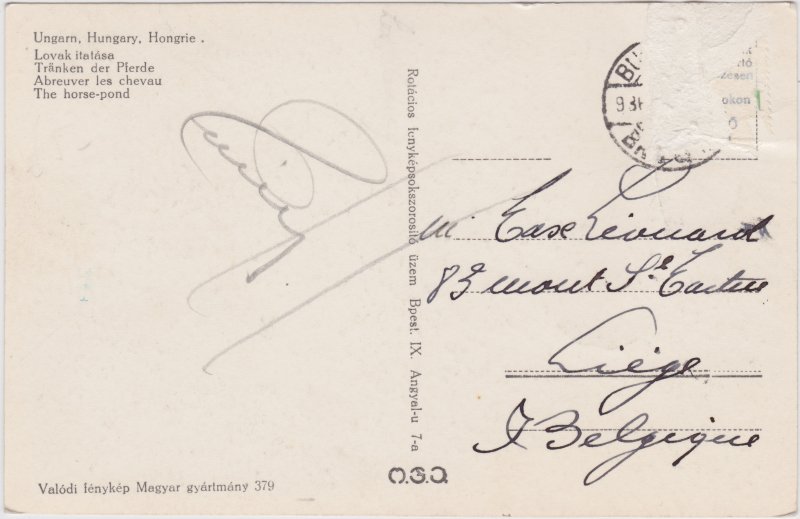 Ungarn, Hungary, Hongrie .
Lovak itatása
Tränken der Pferde
Abreuver les chevau
The horse-pond
Rotációs fenyképsokszorosító üzem Bpest. IX. Angyal-u 7-a
BU
931
zésen
okon
Léonard
83 mont St
Liége
Belgique
O.G.O.
Valódi fénykép Magyar gyártmány 379